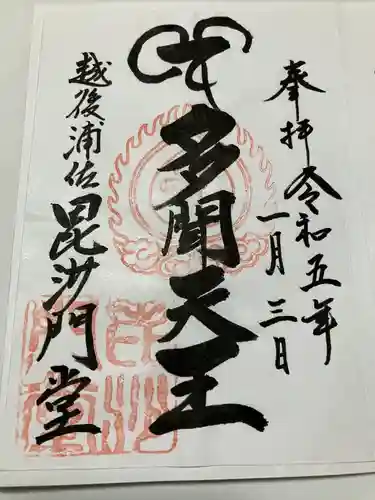 奉拝 令和五年
一月三日
多聞天王
越後浦佐
毘沙門堂